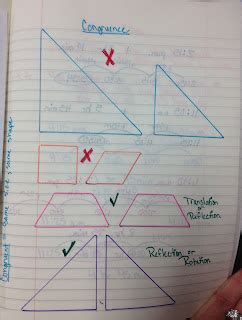 Congruence
Translation
or
Reflection
Reflection or
Rotation
Congruent = same size & same shape